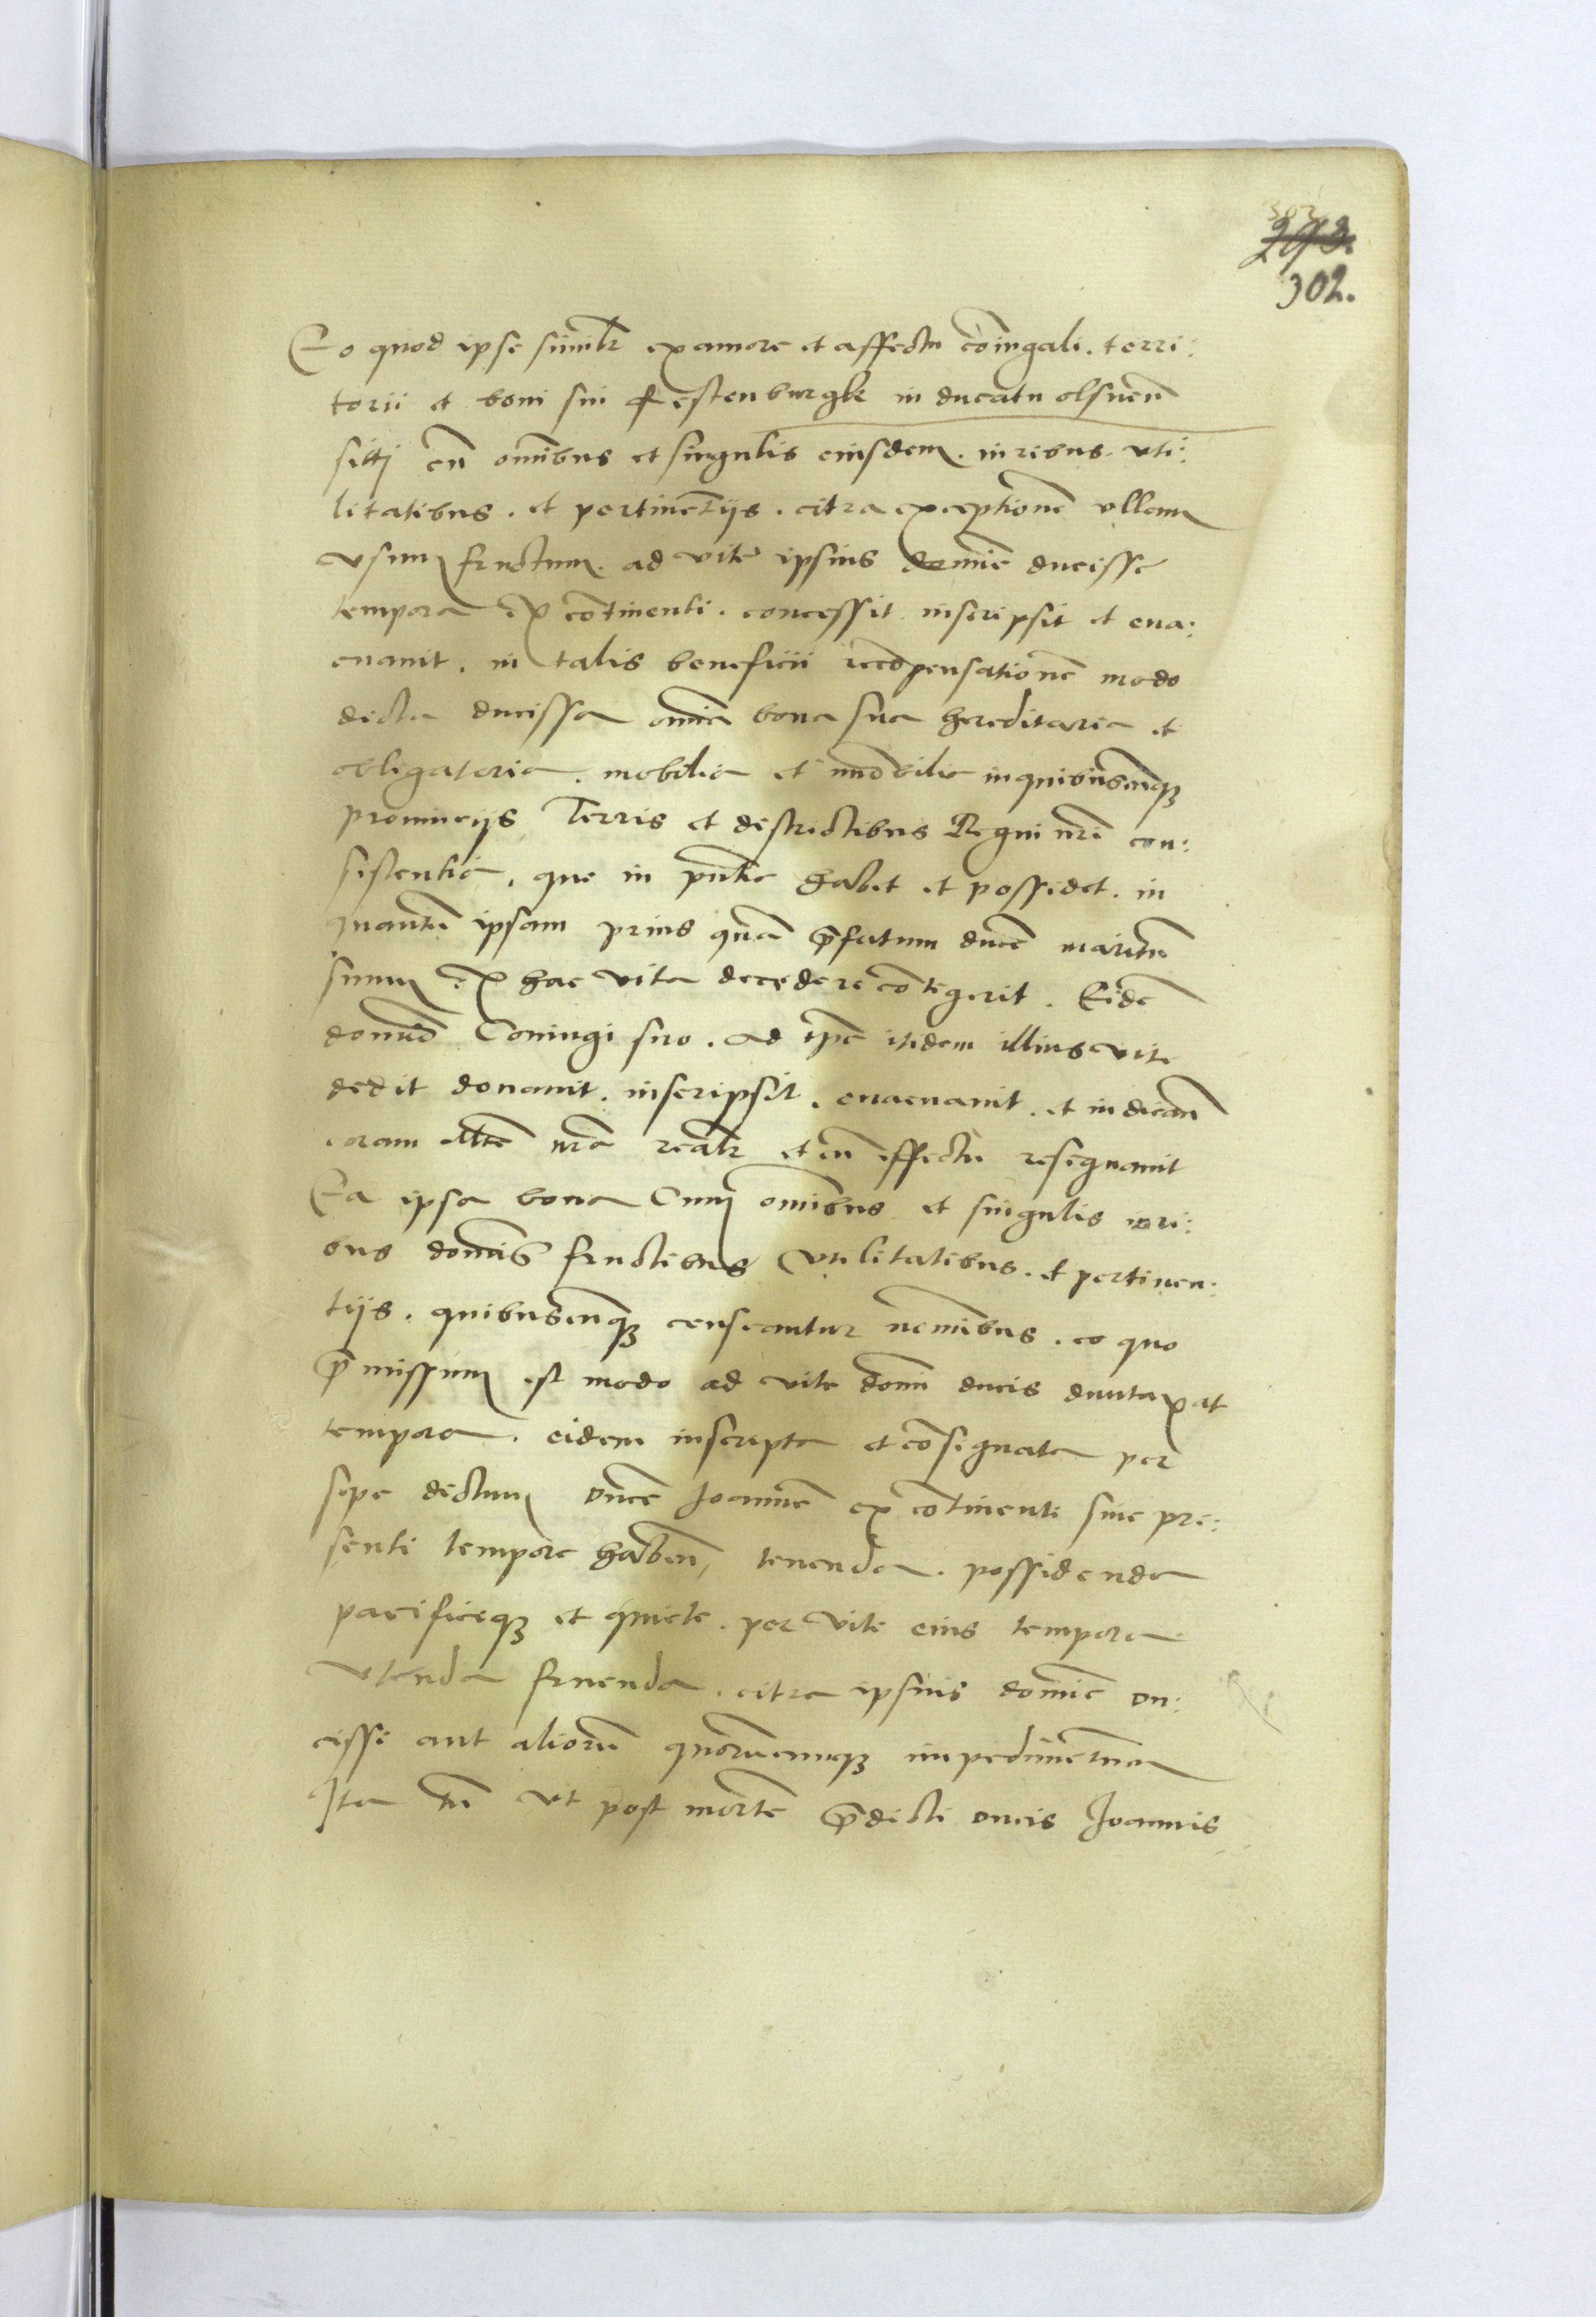 302
293.
302.
Eo quod ipse similr ex amore et affectu coiugali. terri:
torii et boni sui Festenburgk in ducatu olsnen
sitj cu omibus et singulis eiusdem. iuribus. uti:
litatibus. et pertinetijs. citra exceptione ullam
usum fructum. ad vite ipsius domie ducisse
tempora ex cotinenti. concessit inscripsit et eva:
cuauit. in talis beneficii recopensatione modo
dicta ducissa omia bona sua hereditaria et
obligatoria. mobilia et imobilia in quibuscuqz
prouincijs Terris et districtibus Regni nri con:
sistentia, que in pntia habet et possidet. in
quantu ipsam prius qua pfatum duce maritu
suum ex hac vita decedere cotigerit. Eide
domio Coniugi suo. ad tpe itidem illius vite
dedit donauit. inscripsit. euacuauit. et in dican
coram Mte nra realr et cu effectu resignauit
Ea ipsa bona Cum omibus et singulis iuri:
bus domijs fructibus Utilitatibus. et pertinen:
tijs. quibuscuqz censeantur nomibus. eo quo
pmissum est modo ad vite domi ducis duntaxat
tempora. eidem inscripta et cosignata per
sepe dictum Duce Joanne ex cotinenti siue pre:
senti tempore haben, tenenda. possidenda
pacificeqz et quiete. per vite eius tempora
Utenda fruenda. citra ipsius domie Du:
cisse aut alioru quorucumqz impedimetum
Ita tn Ut post morte pdicti Ducis Joannis